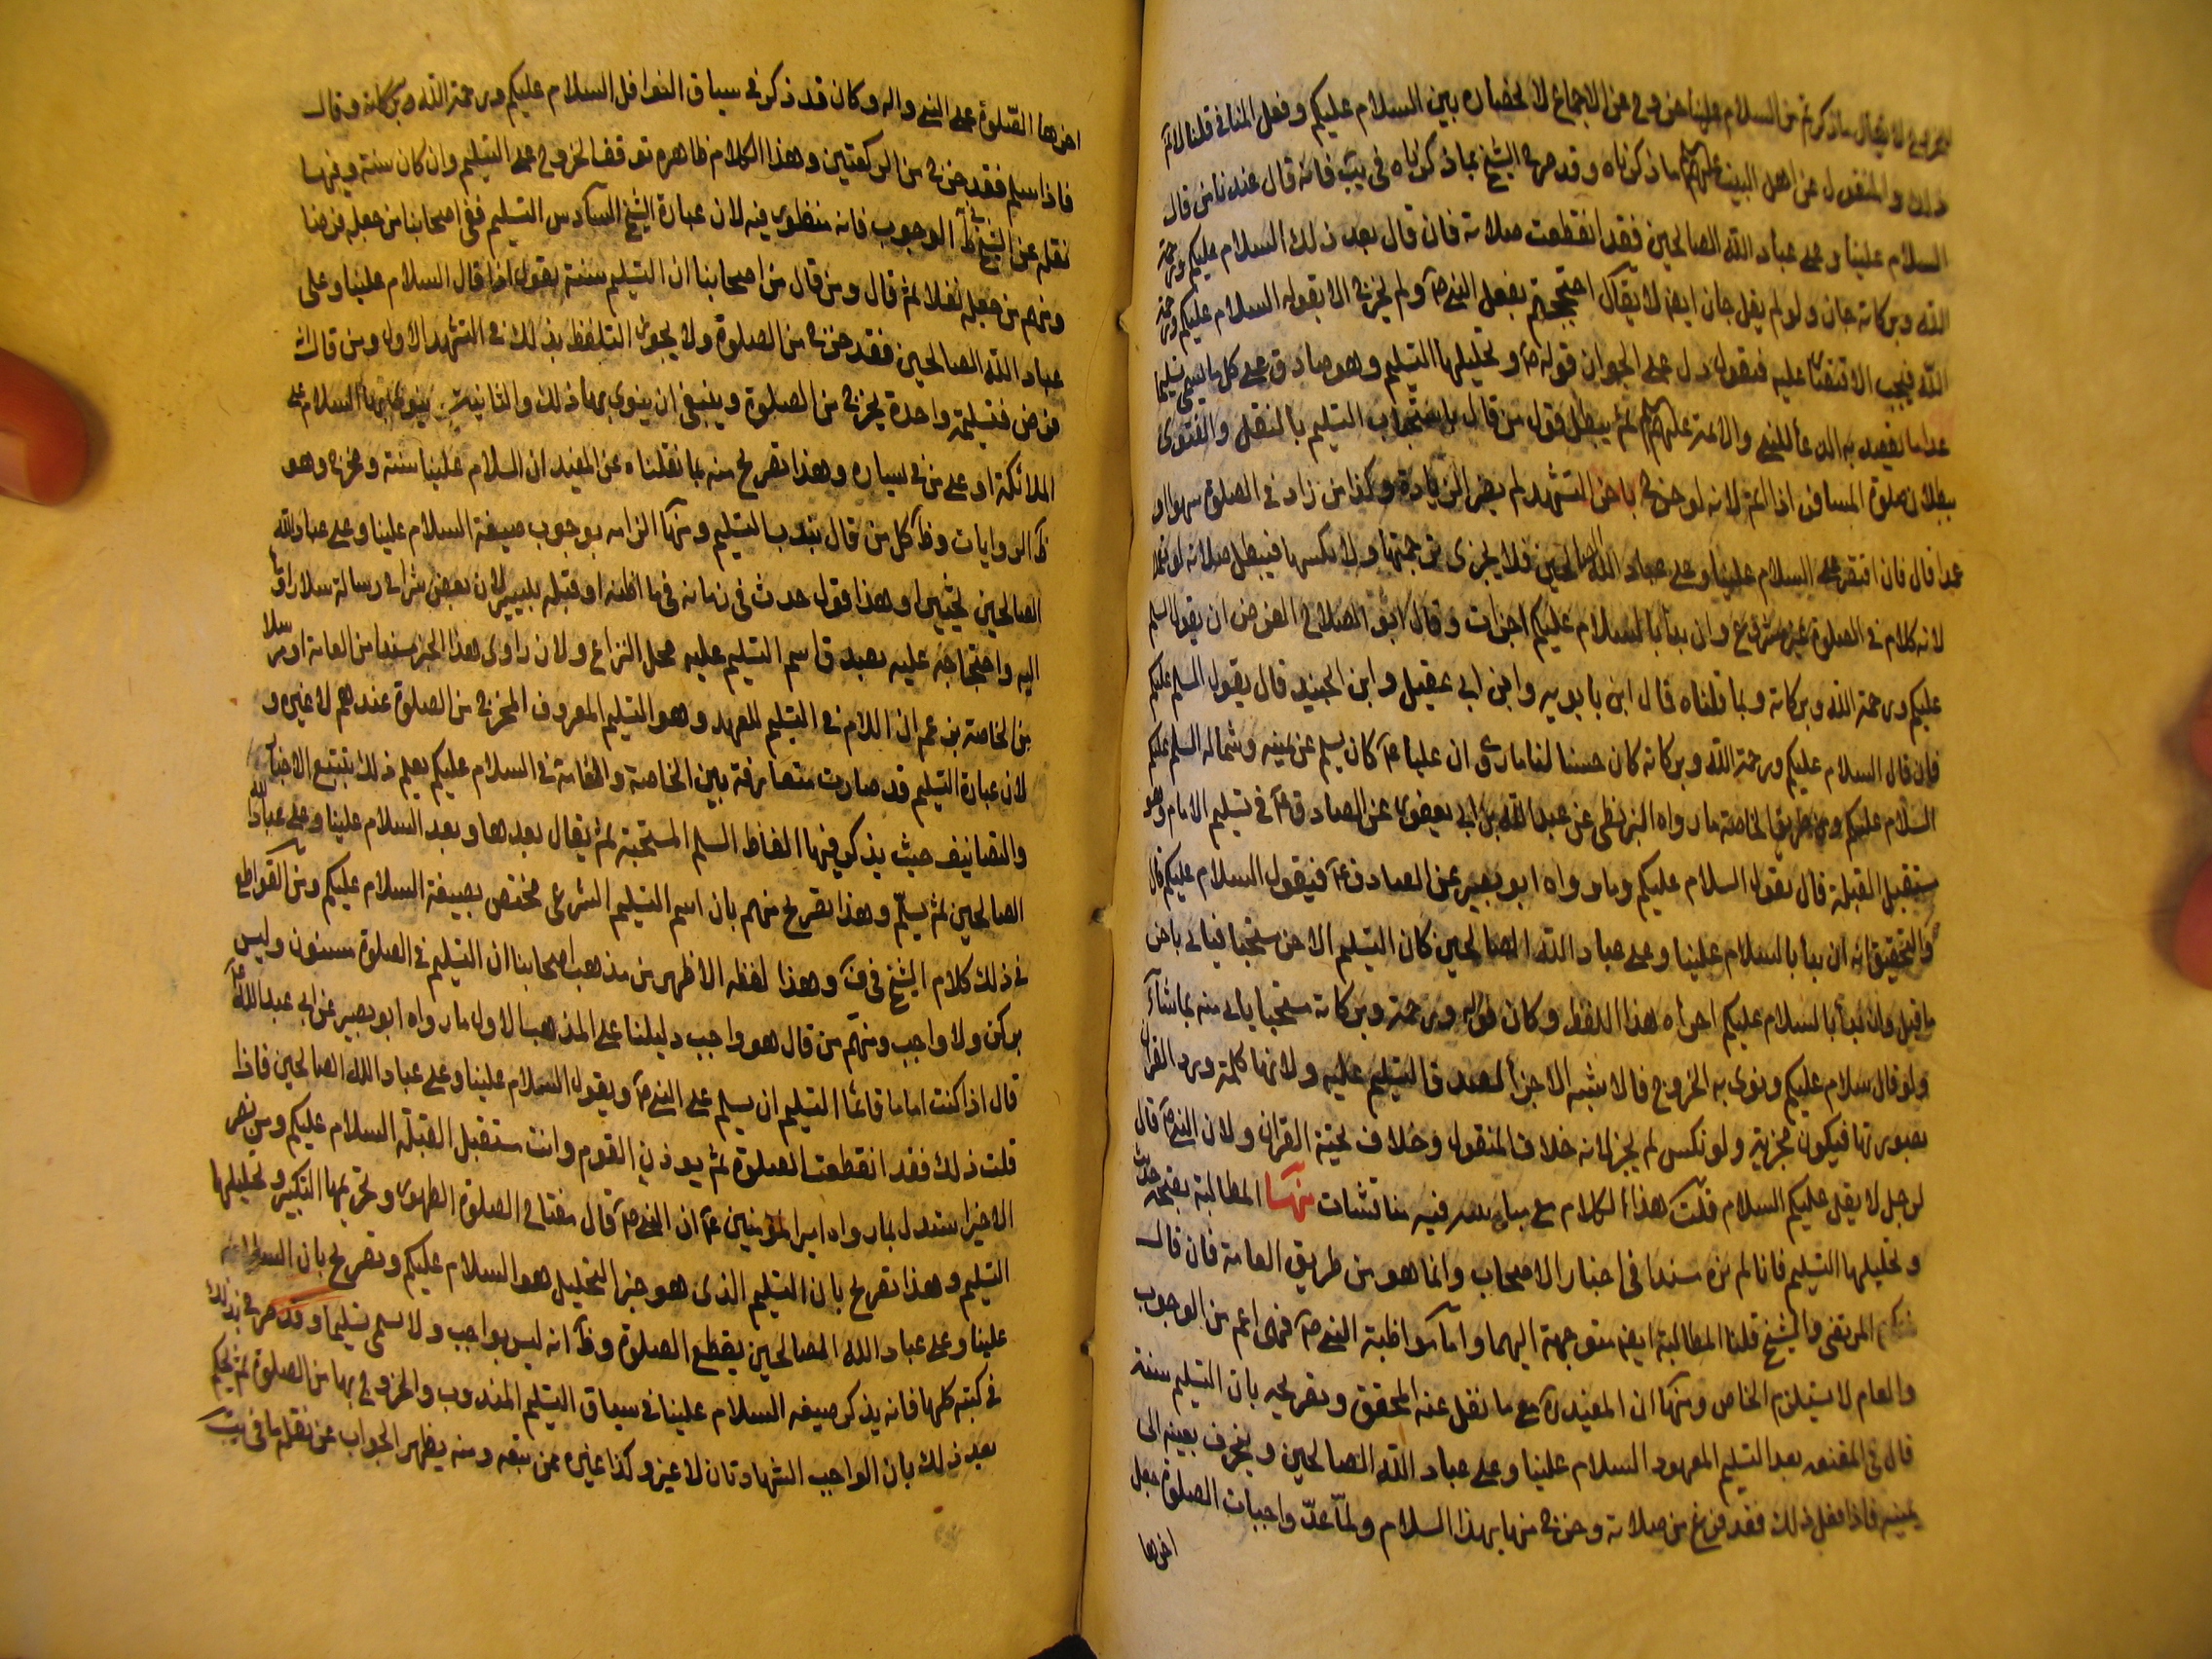 للخروج لا يقال ما ذكرتم من السلام علينا خروج عن الاجماع لانحصاره بين السلام عليكم وفعل المنافي قلنا لا ثم
ذلك والمنقول عن اهل البيت عليهم السلم ما ذكرناه وقد صرح الشيخ بما ذكرناه في يب فانه قال عندنا من قال
السلام علينا وعلى عباد الله الصالحين فقد انقطعت صلاته فان قال بعد ذلك السلام عليكم ورحمة
الله وبركاته جاز ولو لم يقل جاز ايض لا يقال احتججتم بفعل النبي ص ولم يخرج الا بقوله السلام عليكم ورحمة
الله فيجب الاقتصار عليه فنقول دل على الجواز قوله ص وتحليلها التسليم وهو صادق على كل ما يسمى تسليما
عدا ما يقصد به الدعأ للنبي والائمة عليهم السلم ثم يبطل قول من قال باستحباب التسليم بالنقل والفتوى
ببطلان صلوة المسافر اذا اتم لانه لو خرج باخر التشهد لم يضر الزيادة وكذا من زاد في الصلوة سهوا او
عمدا قال فان اقتصر على السلام علينا وعلى عباد الله الصالحين فلا يجزى ترجمتها ولا نكسها فيبطل صلاته لو تعمد
لانه كلام في الصلوة غير مشروع وان بدأ بالسلام عليكم اجزأت وقال ابو الصلاح الفرض ان يقول السلم
عليكم ورحمة الله وبركاته وبما قلناه قال ابن بابويه وابن ابي عقيل وابن الجنيد قال يقول السلم عليكم
فان قال السلام عليكم ورحمة الله وبركاته كان حسنا لنا ما روى ان عليا ع كان يسلم عن يمينه وشماله السلم عليكم
السلام عليكم ومن طريق الخاصة ما رواه البزنطي عن عبد الله بن ابي يعفور عن الصادق ع في تسليم الامام وهو
مستقبل القبلة قال يقول السلام عليكم وما رواه ابو بصير عن الصادق ع فيقول السلام عليكم قال
والتحقيق انه ان بدأ بالسلام علينا وعلى عباد الله الصالحين كان التسليم الاخر مستحبا فياتى باحسن
ما قيل وان بدأ بالسلام عليكم اجزاه هذا اللفظ وكان قوله ورحمة وبركاته مستحبا ياتي منه بما شأ
ولو قال سلام عليكم ونوى به الخروج فالاشبه الاجزأ لصدق التسليم عليه ولانها كلمة ورد القران
بصورتها فيكون مجزية ولو نكس لم يجز لانه خلاف المنقول وخلاف تحية القران ولان النبي ص قال
لرجل لا يقل عليكم السلام قلت هذا الكلام مع فيه مناقشات منها المطالبة بصحة حديث
وتحليلها التسليم فانا لم نره مسندا في اخبار الاصحاب وانما هو من طريق العامة فان قال
المرتضى والشيخ قلنا المطالبة ايض متوجهة اليهما واما مواظبة النبي ص فهى اعم من الوجوب
والعام لا يستلزم الخاص ومنها ان المفيد ره مع ما نقل عنه المحقق وتصريحه بان التسليم سنة
قال في المقنعه بعد التسليم المعهود السلام علينا وعلى عباد الله الصالحين وينحرف بعينه الى
يمينه فاذا فعل ذلك فقد فرغ من صلاته وخرج منها بهذا السلام ولما عدّ واجبات الصلوة جعل
اخرها
اخرها الصلوة على النبي واله وكان قد ذكر في سياق النوافل السلام عليكم ورحمة الله وبركاته وقال
فاذا سلم فقد خرج من الركعتين وهذا الكلام ظاهره توقف الخروج على التسليم وان كان سنة وفيها
نقله عن الشيخ في ط الوجوب فانه منظور فيه لان عبارة الشيخ السادس التسليم ففى اصحابنا من جعله فرضا
ومنهم من جعله نفلا ثم قال ومن قال من اصحابنا ان التسليم سنة يقول اذا قال السلام علينا وعلى
عباد الله الصالحين فقد خرج من الصلوة ولا يجوز التلفظ بذلك في التشهد الاول ومن قال انه
فرض فتسليمة واحدة يخرج من الصلوة وينبغي ان ينوى بها ذلك والثانية ينوي بها السلام على
الملائكة او على من في يساره وهذا تصريح منه بما نقلناه عن المفيد ان السلام علينا سنة ومخرج وهو
ظ الروايات وظ كل من قال بندب التسليم ومنها الزامه بوجوب صيغة السلام علينا وعلى عباد الله
الصالحين تخييرا وهذا قول حدث في زمانه فيما اظنه او قبله بيسير لان بعض شراح رسالة سلار اومأ
اليه واحتجاجه عليه بصدق اسم التسليم عليه محل النزاع ولان راوى هذا الخبر مسندا من العامة او مرسلا
من الخاصة يزعم ان اللام في التسليم للعهد وهو التسليم المعروف المخرج من الصلوة عندهم لا غيره و
لان عبارة التسليم قد صارت متعارفة بين الخاصة والعامة في السلام عليكم يعلم ذلك بتتبع الاخبار
والتصانيف حيث يذكر فيها الفاظ السلم المستحبة ثم يقال بعدها وبعد السلام علينا وعلى عباد الله
الصالحين ثم يسلّم وهذا تصريح منهم بان اسم التسليم الشرعي مختص بصيغة السلام عليكم ومن القواطع
في ذلك كلام الشيخ في ف وهذا لفظه الاظهر من مذهب اصحابنا ان التسليم في الصلوة مسنون وليس
بركن ولا واجب ومنهم من قال هو واجب دليلنا على المذهب الاول ما رواه ابو بصير عن ابي عبد الله ع
قال اذا كنت اماما فانما التسليم ان يسلم على النبي ص ويقول السلام علينا وعلى عباد الله الصالحين فاذا
قلت ذلك فقد انقطعت الصلوة ثم يوذن القوم وانت مستقبل القبلة السلام عليكم ومن نصر
الاخير استدل بما رواه امير المؤمنين ع ان النبي ص قال مفتاح الصلوة الطهور وتحريمها التكبير وتحليلها
التسليم وهذا تصريح بان التسليم الذى هو خبر التحليل هو السلام عليكم وتصريح بان السلام
علينا وعلى عباد الله الصالحين يقطع الصلوة وظ انه ليس بواجب ولا يسمى تسليما وقد صرح بذلك
في كتبه كلها فانه يذكر صيغه السلام علينا في سياق التسليم المندوب والخروج بها من الصلوة ثم يحكم
بعد ذلك بان الواجب الشهادتان لا غير وكذا غيره ممن تبعه ومنه يظهر الجواب عن نقله ما في يب